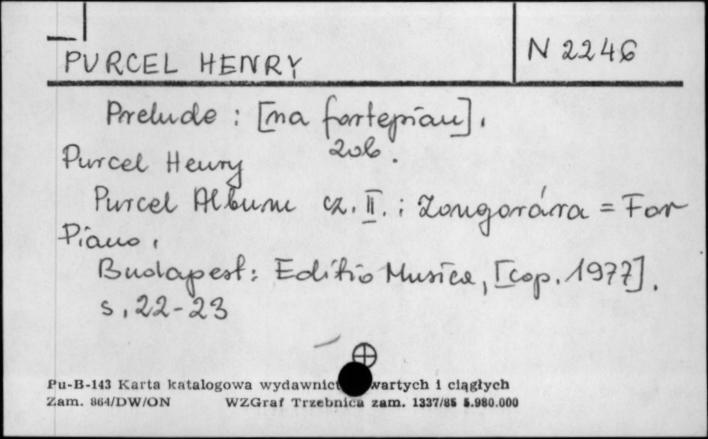 PURCEL HENRY
N 2246
Prelude : [na fortepian].
zob.
Purcel Henry
Purcel Album cz. II. : Zongorára = For
Piano.
Budapest: Editio Musica, [cop. 1977].
s. 22-23
Pu-B-143 Karta katalogowa wydawnict wartych i ciągłych
Zam. 864/DW/ON WZGraf Trzebnica zam. 1337/85 5.980.000